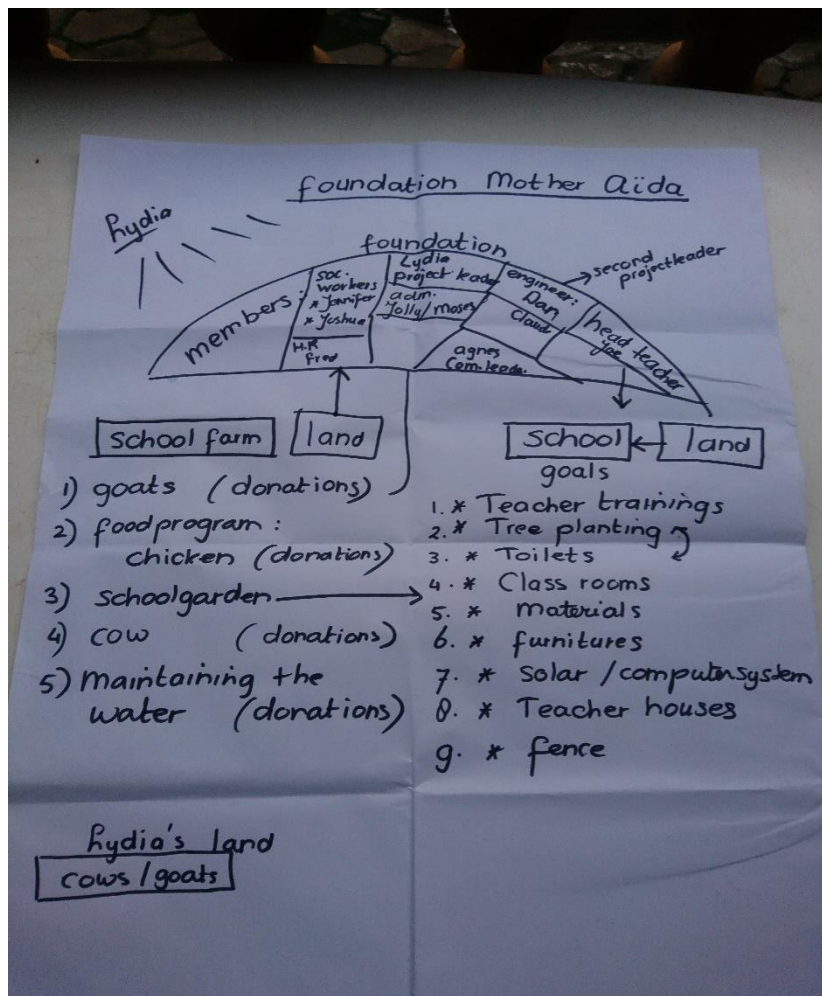 foundation Mother Aïda
Lydia
foundation
members:
soc.
workers
* Jennifer
* Joshua
H.R
Fred
Lydia
project leader
adm.
Jolly/Moses
agnes
Com. leada.
engineer:
Dan
Claud
second
projectleader
head teacher
Joe
school farm
land
1) goats (donations)
2) foodprogram:
chicken (donations)
3) schoolgarden
4) cow (donations)
5) maintaining the
water (donations)
school
land
goals
1. * Teacher trainings
2. * Tree planting
3. * Toilets
4. * Class rooms
5. * materials
6. * furnitures
7. * Solar / computersystem
8. * Teacher houses
9. * fence
Lydia's land
cows/goats